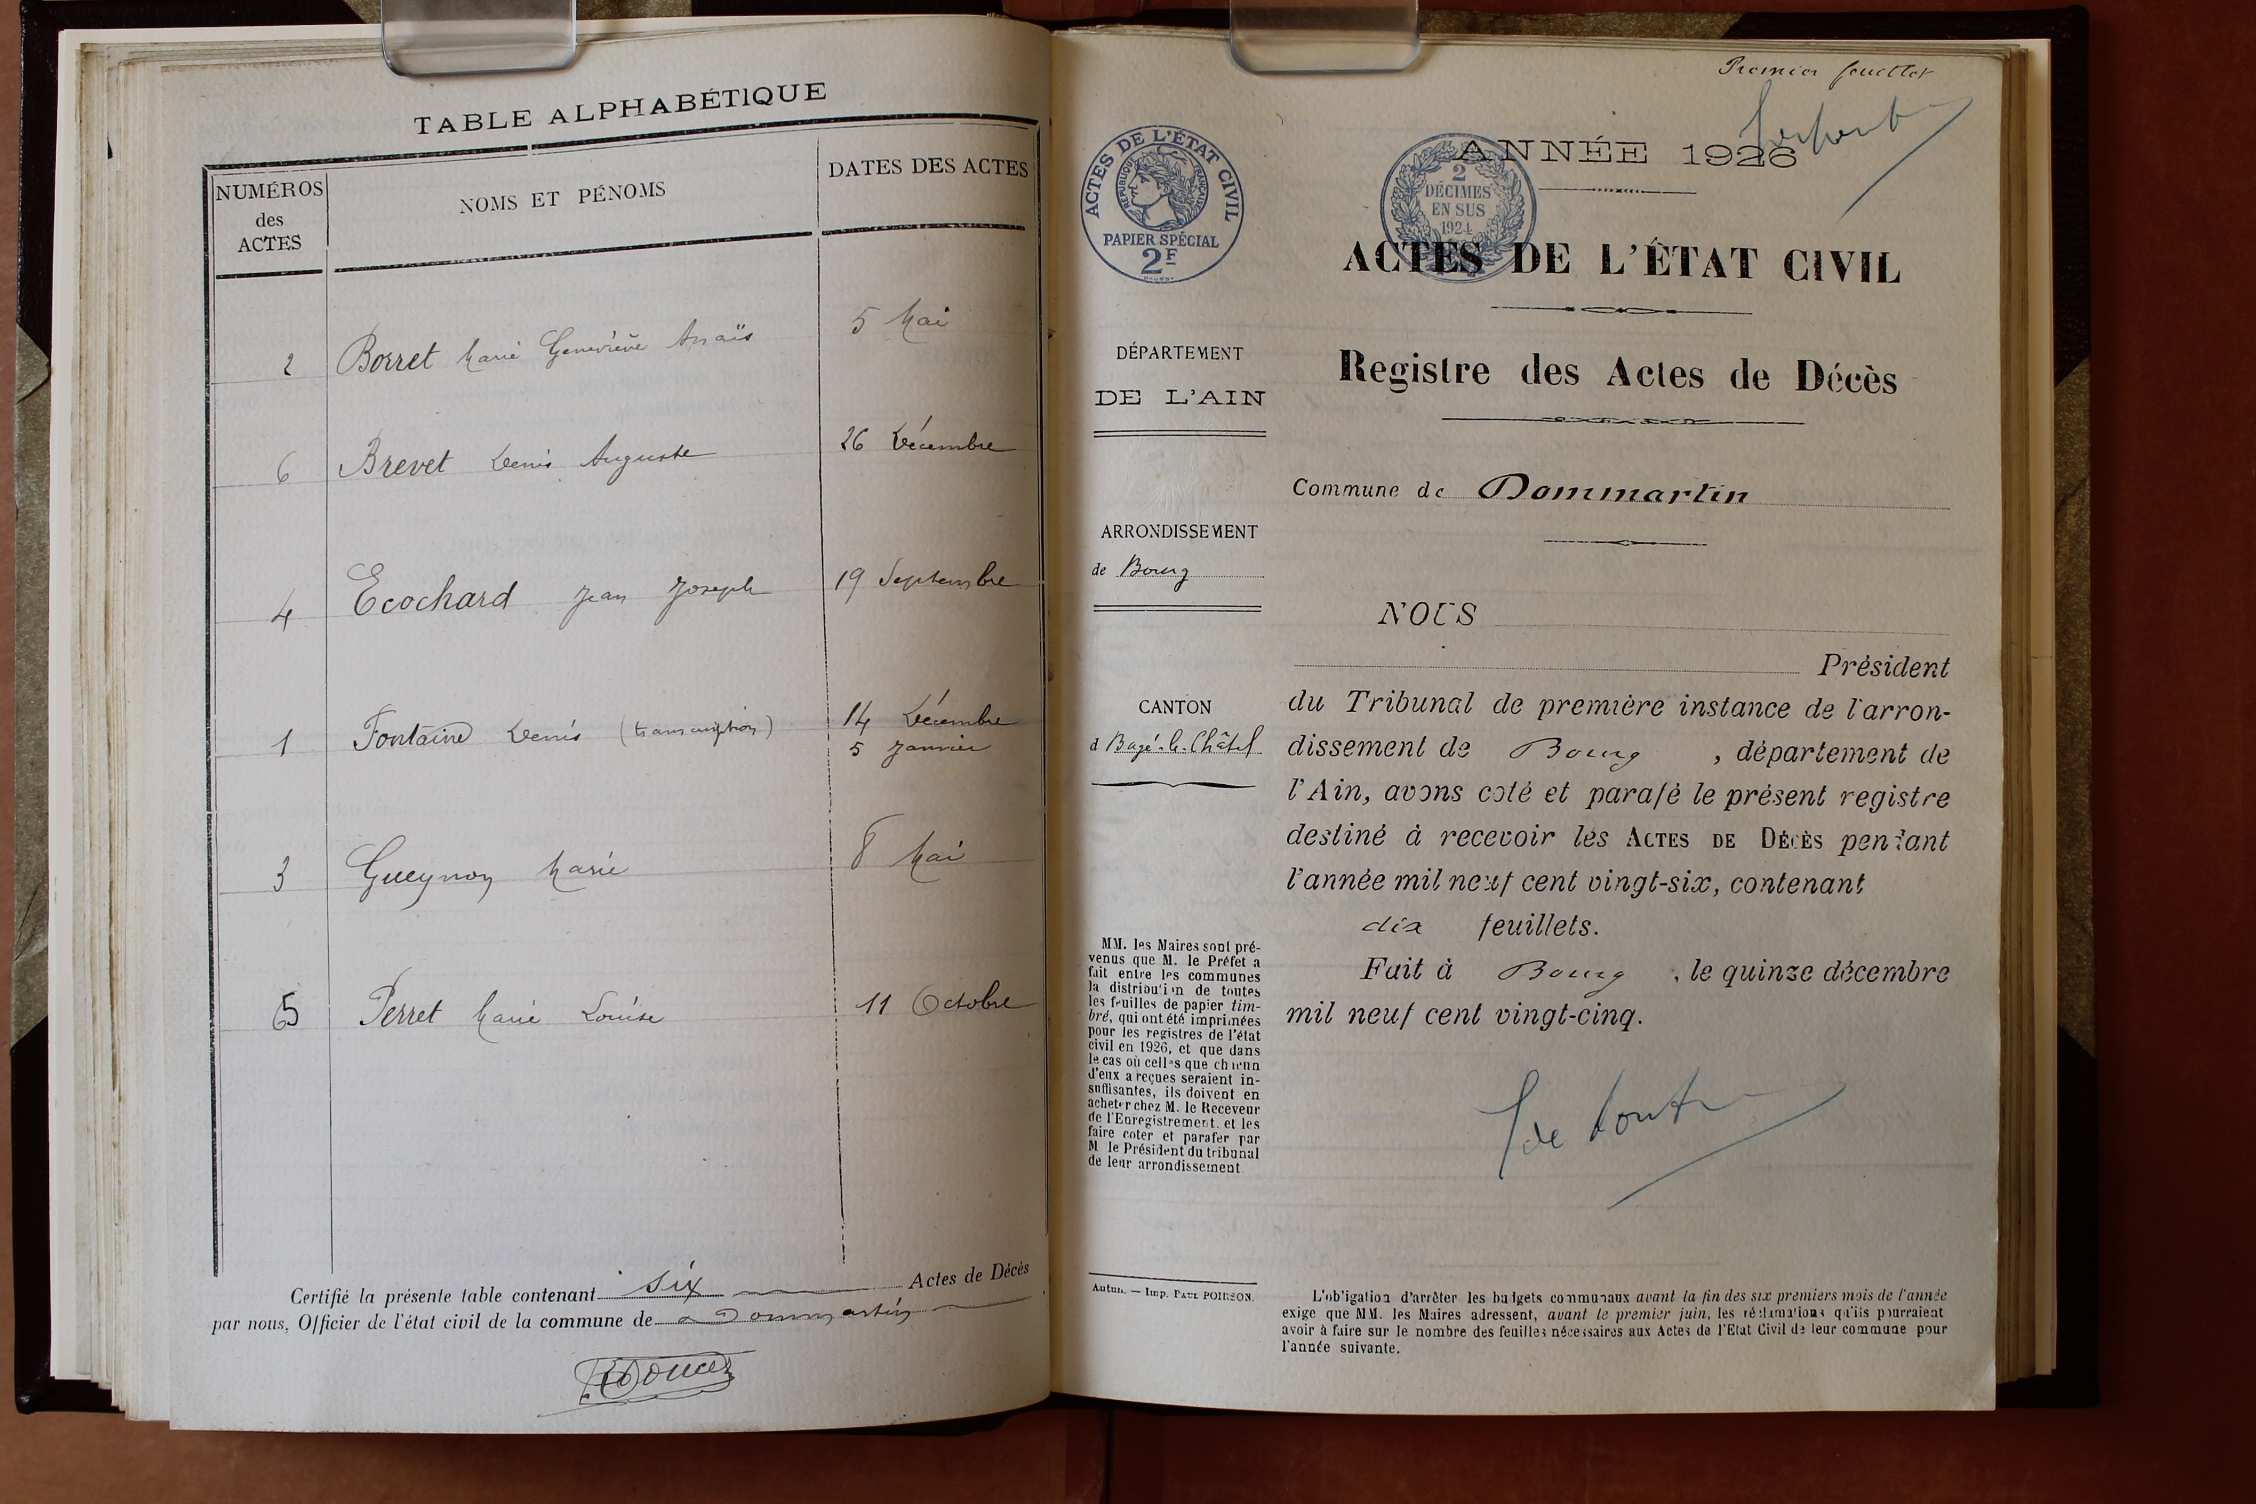 TABLE ALPHABÉTIQUE
NUMÉROS des ACTES
NOMS ET PÉNOMS
DATES DES ACTES
2 Borret Marie Geneviève Anaïs 5 Mai
6 Brevet Denis Auguste 26 Décembre
4 Ecochard Jean Joseph 19 Septembre
1 Fontaine Denis (transcription) 14 Décembre
5 Janvier
3 Gueynon Marie 8 Mai
5 Perret Marie Louise 11 Octobre
Certifié la présente table contenant six Actes de Décès
par nous, Officier de l'état civil de la commune de Dommartin
Premier feuillet
ANNÉE 1926
ACTES DE L'ÉTAT CIVIL
RÉPUBLIQUE FRANÇAISE
PAPIER SPÉCIAL
2F
2
DÉCIMES
EN SUS
1924
ACTES DE L'ÉTAT CIVIL
Registre des Actes de Décès
Commune de Dommartin
DÉPARTEMENT
DE L'AIN
ARRONDISSEMENT
de Bourg
CANTON
d Bagé-le-Châtel
MM. les Maires sont pré-
venus que M. le Préfet a
fait entre les communes
la distribution de toutes
les feuilles de papier tim-
bré, qui ont été imprimées
pour les registres de l'état
civil en 1926, et que dans
le cas où celles que chacun
d'eux a reçues seraient in-
suffisantes, ils doivent en
acheter chez M. le Receveur
de l'Enregistrement. et les
faire coter et parafer par
M. le Président du tribunal
de leur arrondissement.
Autun. — Imp. PAUL POIRSON.
NOUS
Président
du Tribunal de première instance de l'arron-
dissement de Bourg, département de
l'Ain, avons coté et parafé le présent registre
destiné à recevoir les ACTES DE DÉCÈS pendant
l'année mil neuf cent vingt-six, contenant
dix feuillets.
Fait à Bourg, le quinze décembre
mil neuf cent vingt-cinq.
L'obligation d'arrêter les budgets communaux avant la fin des six premiers mois de l'année
exige que MM. les Maires adressent, avant le premier juin, les réclamations qu'ils pourraient
avoir à faire sur le nombre des feuilles nécessaires aux Actes de l'Etat Civil de leur commune pour
l'année suivante.